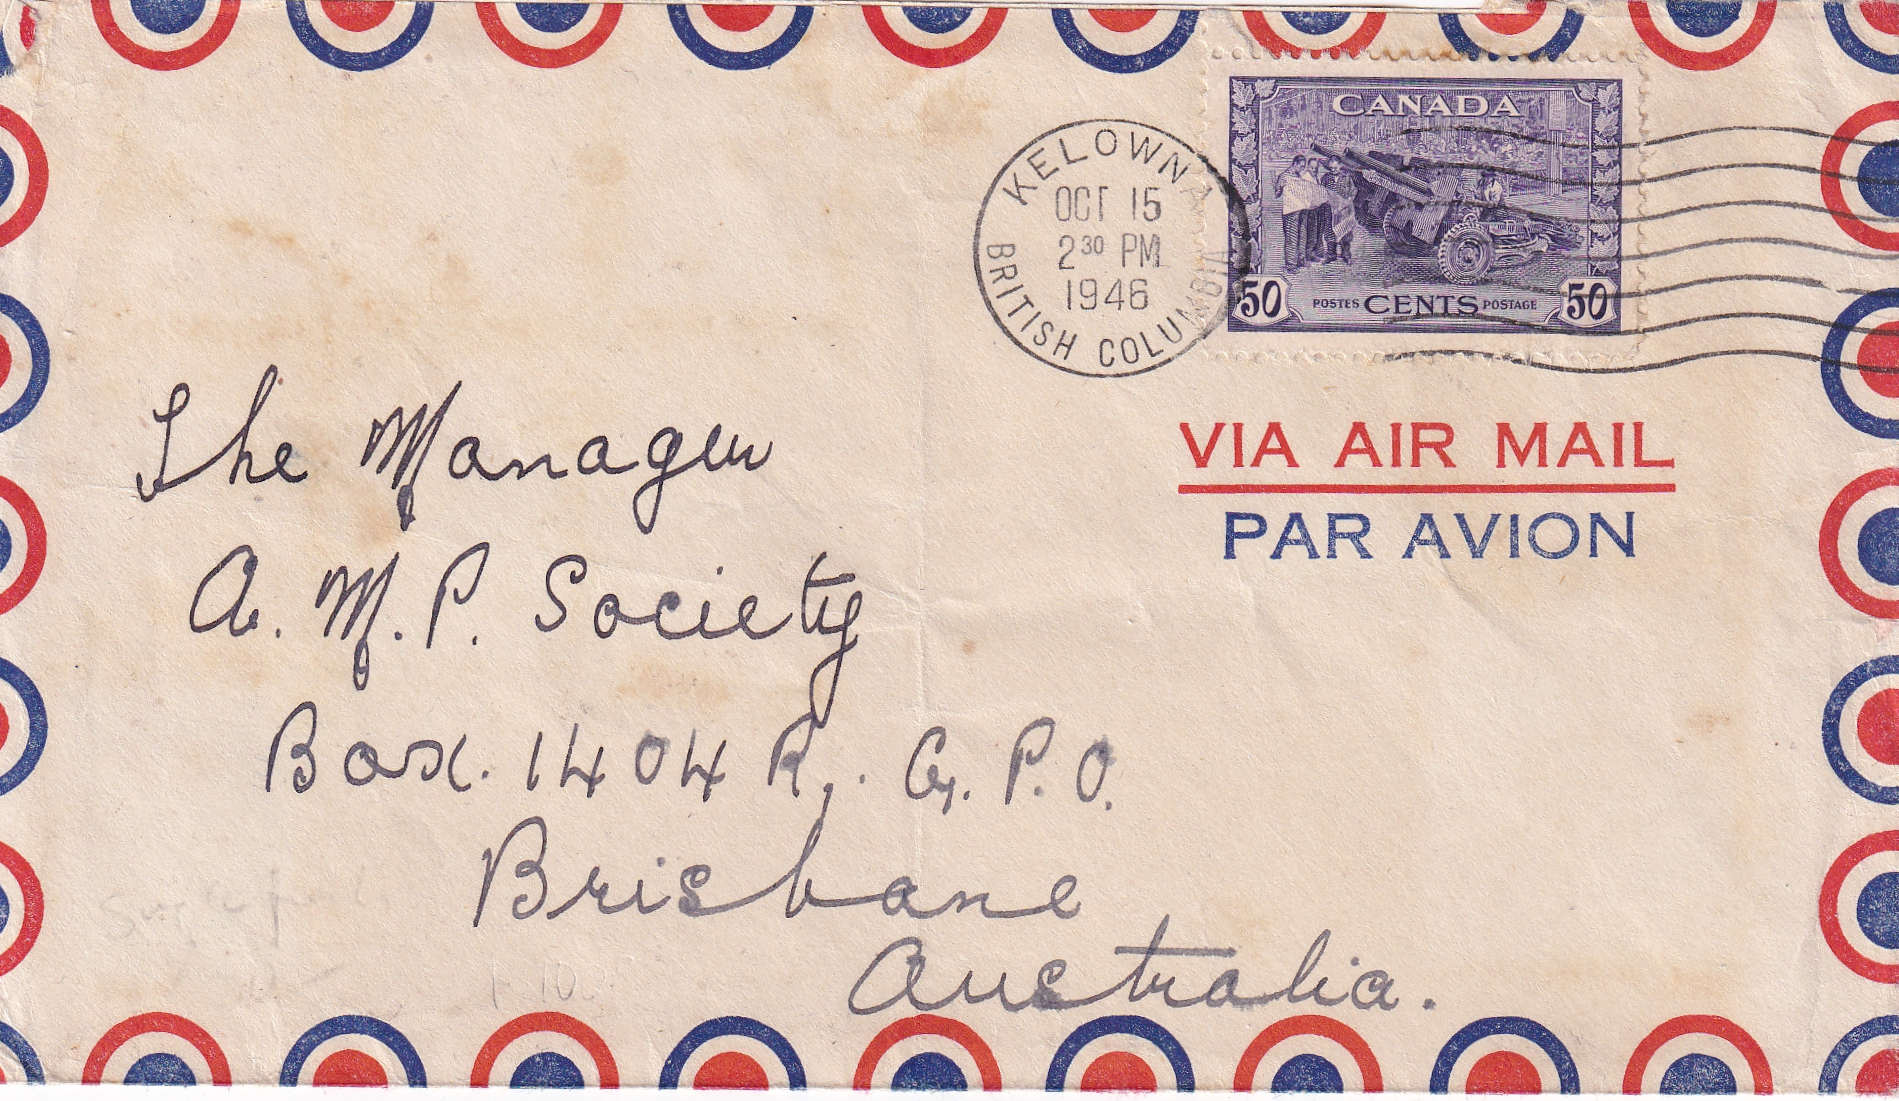 KELOWNA
OCT 15
2 30 PM
1946
BRITISH COLUMBIA
CANADA
50 POSTES CENTS POSTAGE 50
VIA AIR MAIL
PAR AVION
The Manager
A. M. P. Society
Box. 1404 R,. G. P. O.
Brisbane
Australia.